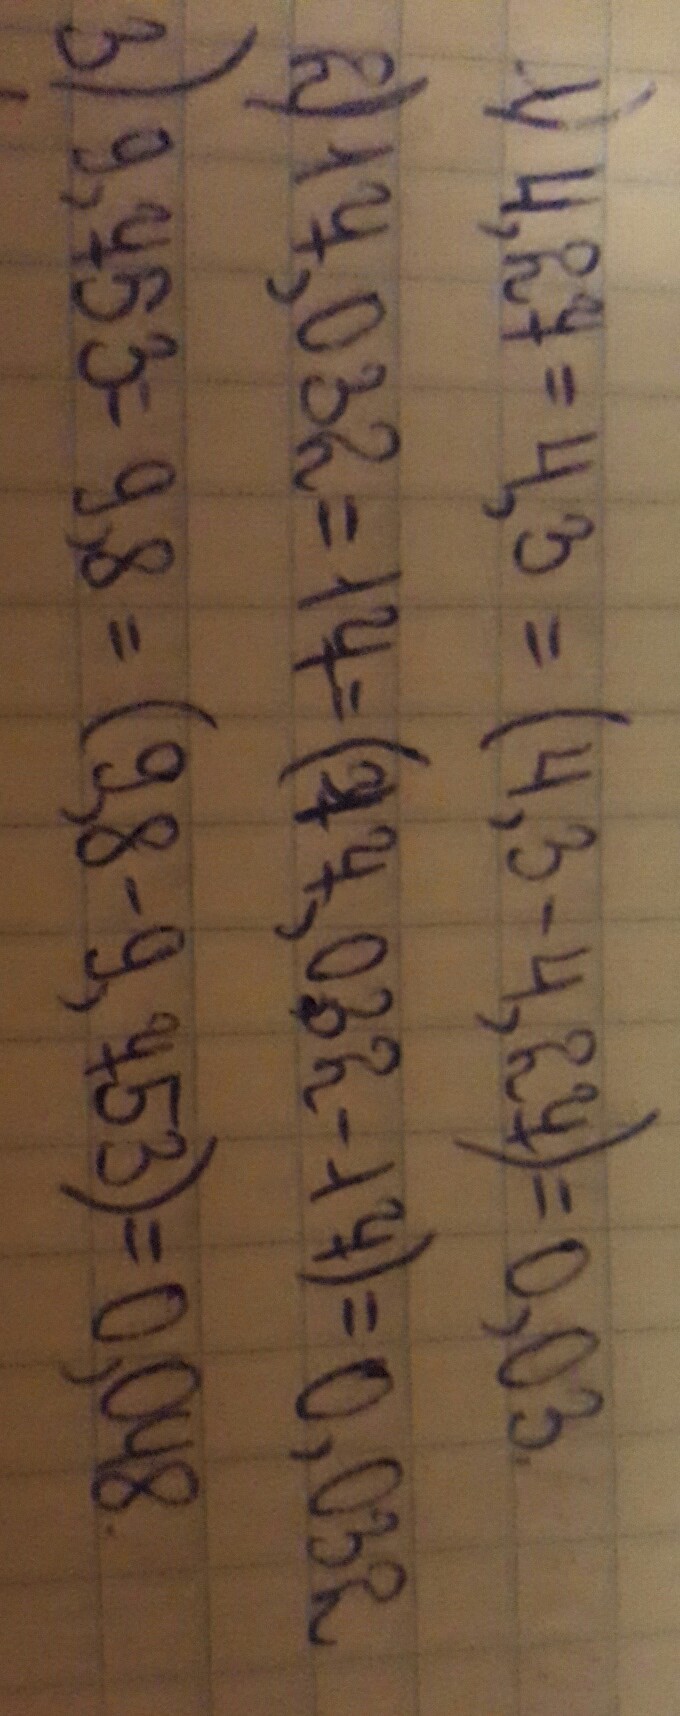 1) 4,27 = 4,3 = (4,3 - 4,27) = 0,03.
2) 17,032 = 17 = (17,032 - 17) = 0,032
3) 9,753 = 9,8 = (9,8 - 9,753) = 0,048.